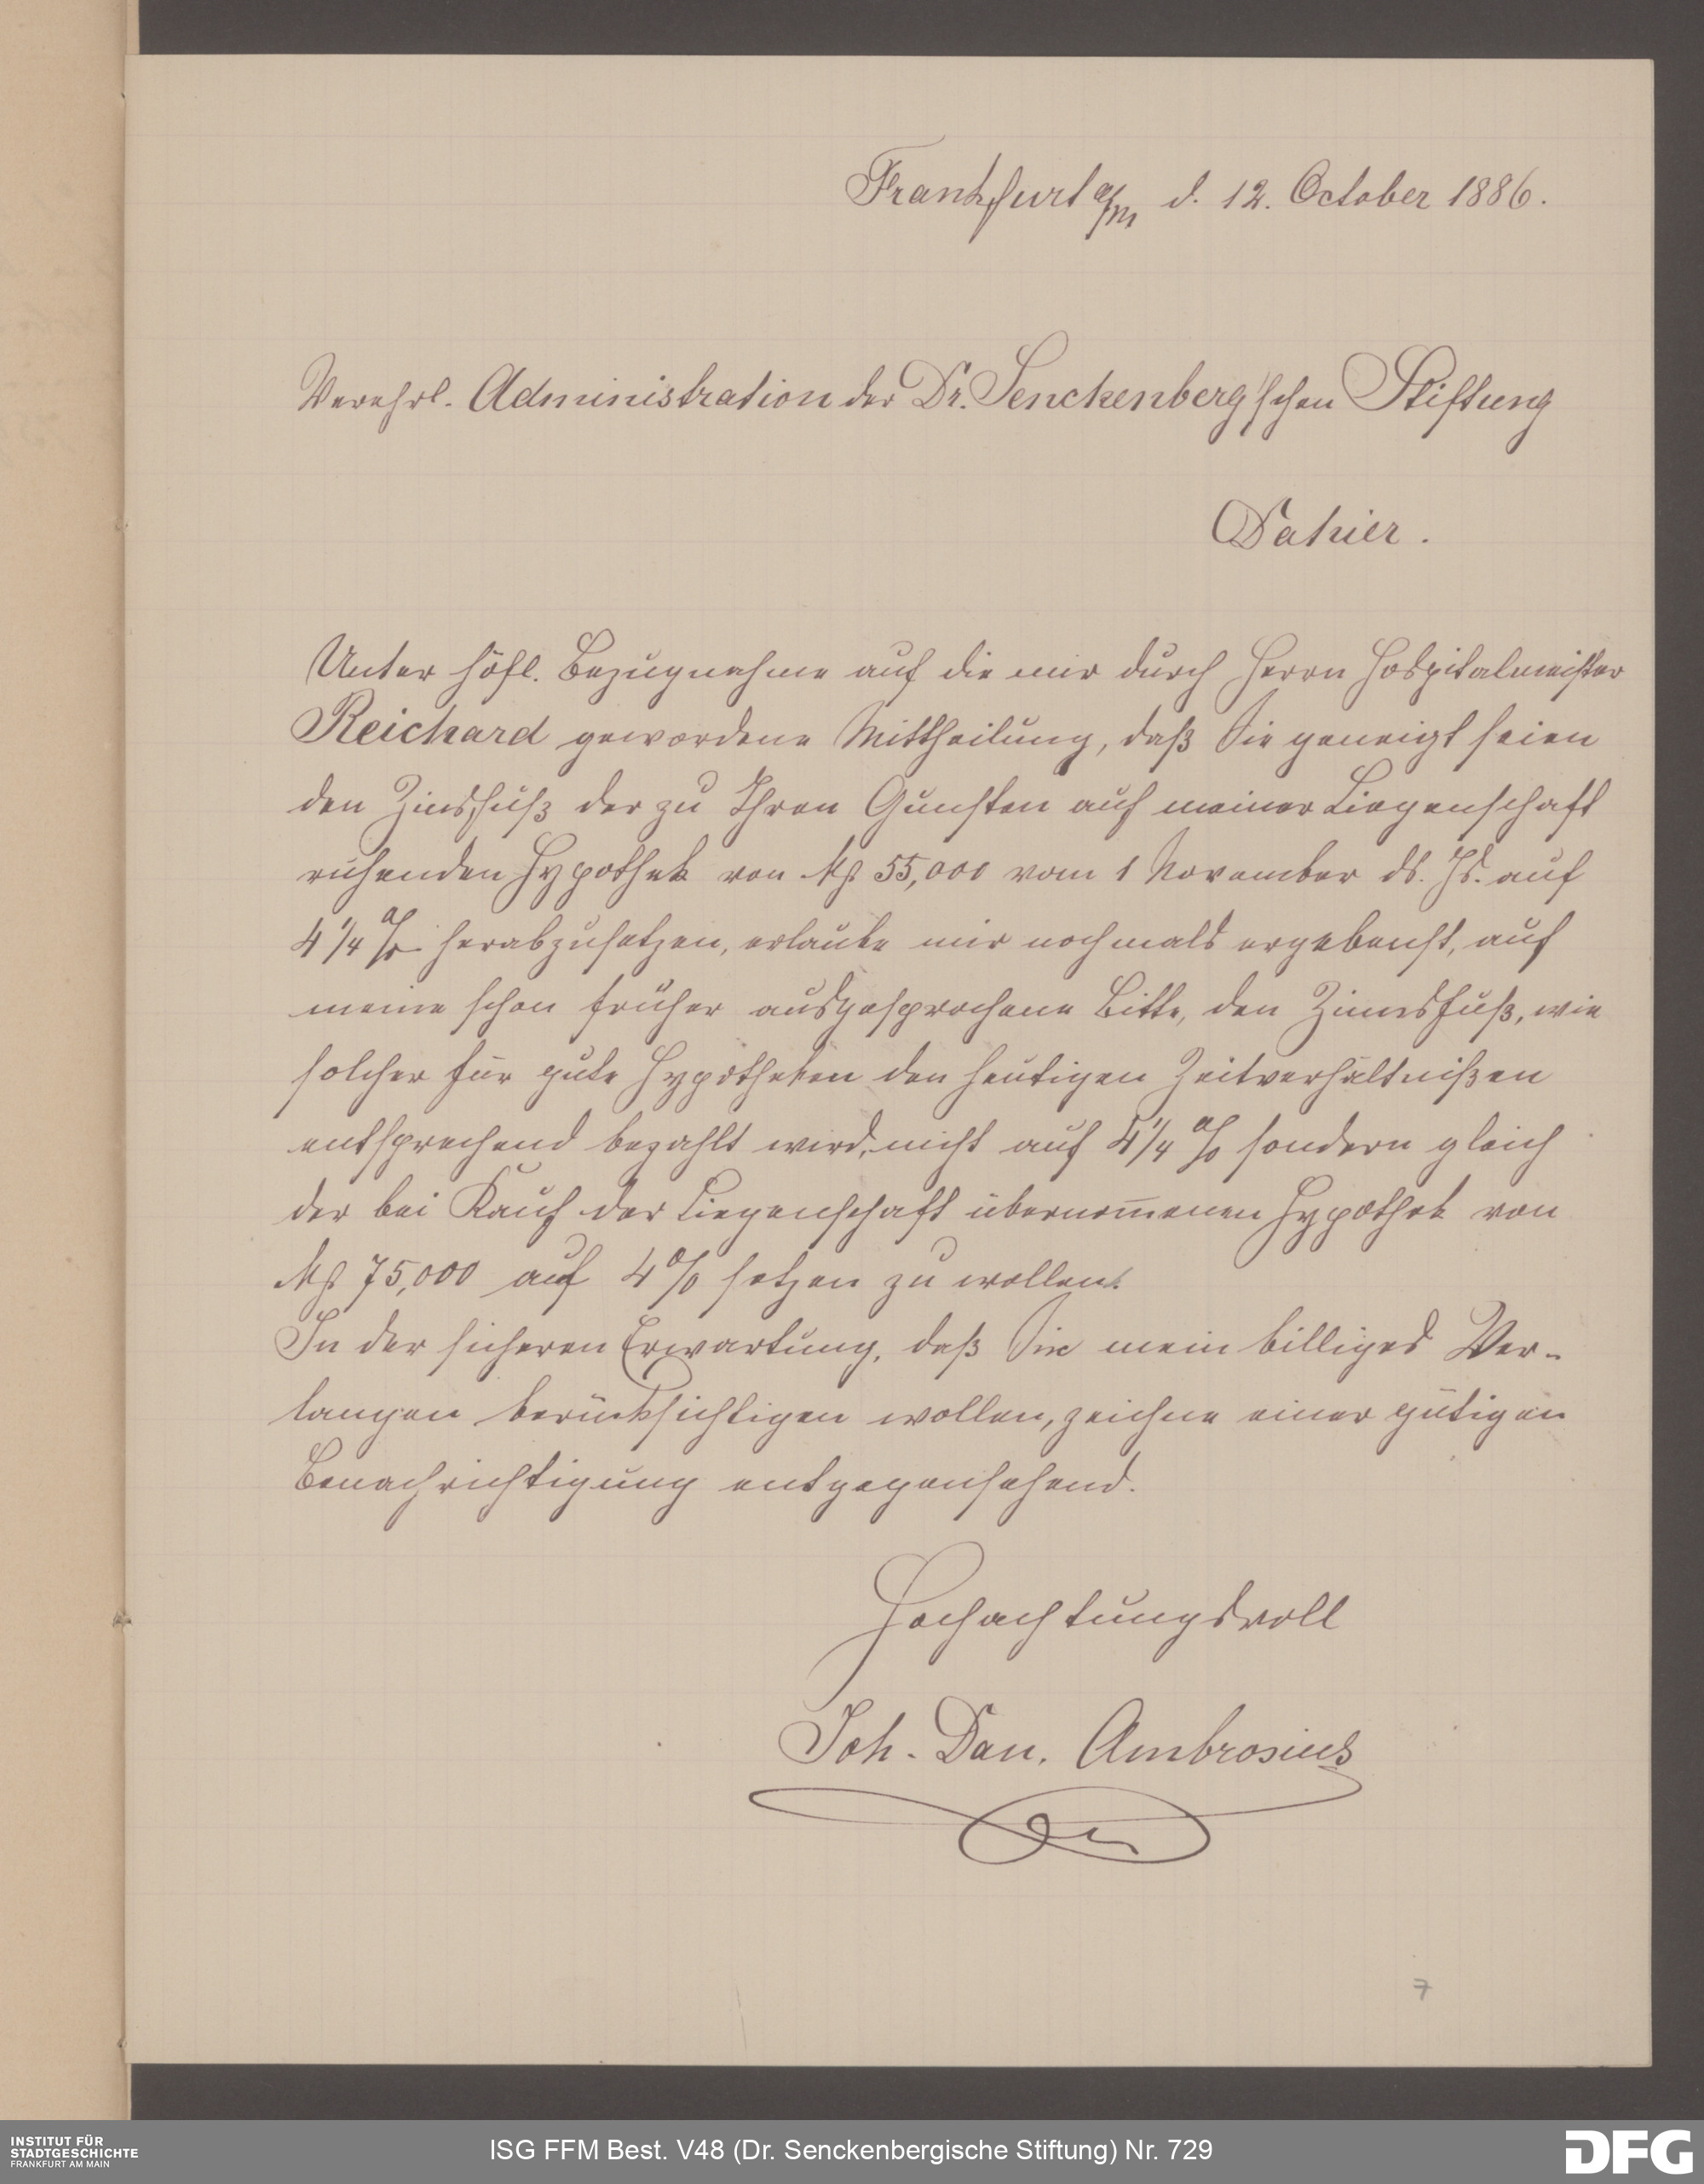 Frankfurt a/m d. 12. October 1886.
Verehrl. Administration der Dr. Senckenberg'schen Stiftung
Dahier.
Unter höfl. Bezugnahme auf die mir durch Herrn Hospitalmeister
Reichard gewordene Mittheilung, daß Sie geneigt seien
den Zinsfuß der zu Ihren Gunsten auf meiner Liegenschaft
ruhenden Hypothek von M 55,000 vom 1 November ds. Js. auf
4 1/4 % herabzusetzen, erlaube mir nochmals ergebenst, auf
meine schon früher ausgesprochene Bitte, den Zinnsfuß, wie
solcher für gute Hypotheken den heutigen Zeitverhältnißen
entsprechend bezahlt wird, nicht auf 4 1/4 % sondern gleich
der bei Kauf der Liegenschaft übernom̅enen Hypothek von
M 75,000 auf 4 % setzen zu wollen.
In der sicheren Erwartung, daß Sie mein billiges Ver-
langen berücksichtigen wollen, zeichne einer gütigen
Benachrichtigung entgegensehend.
Hochachtungsvoll
Joh. Dan. Ambrosius
7
INSTITUT FÜR
STADTGESCHICHTE
FRANKFURT AM MAIN
ISG FFM Best. V48 (Dr. Senckenbergische Stiftung) Nr. 729
DFG